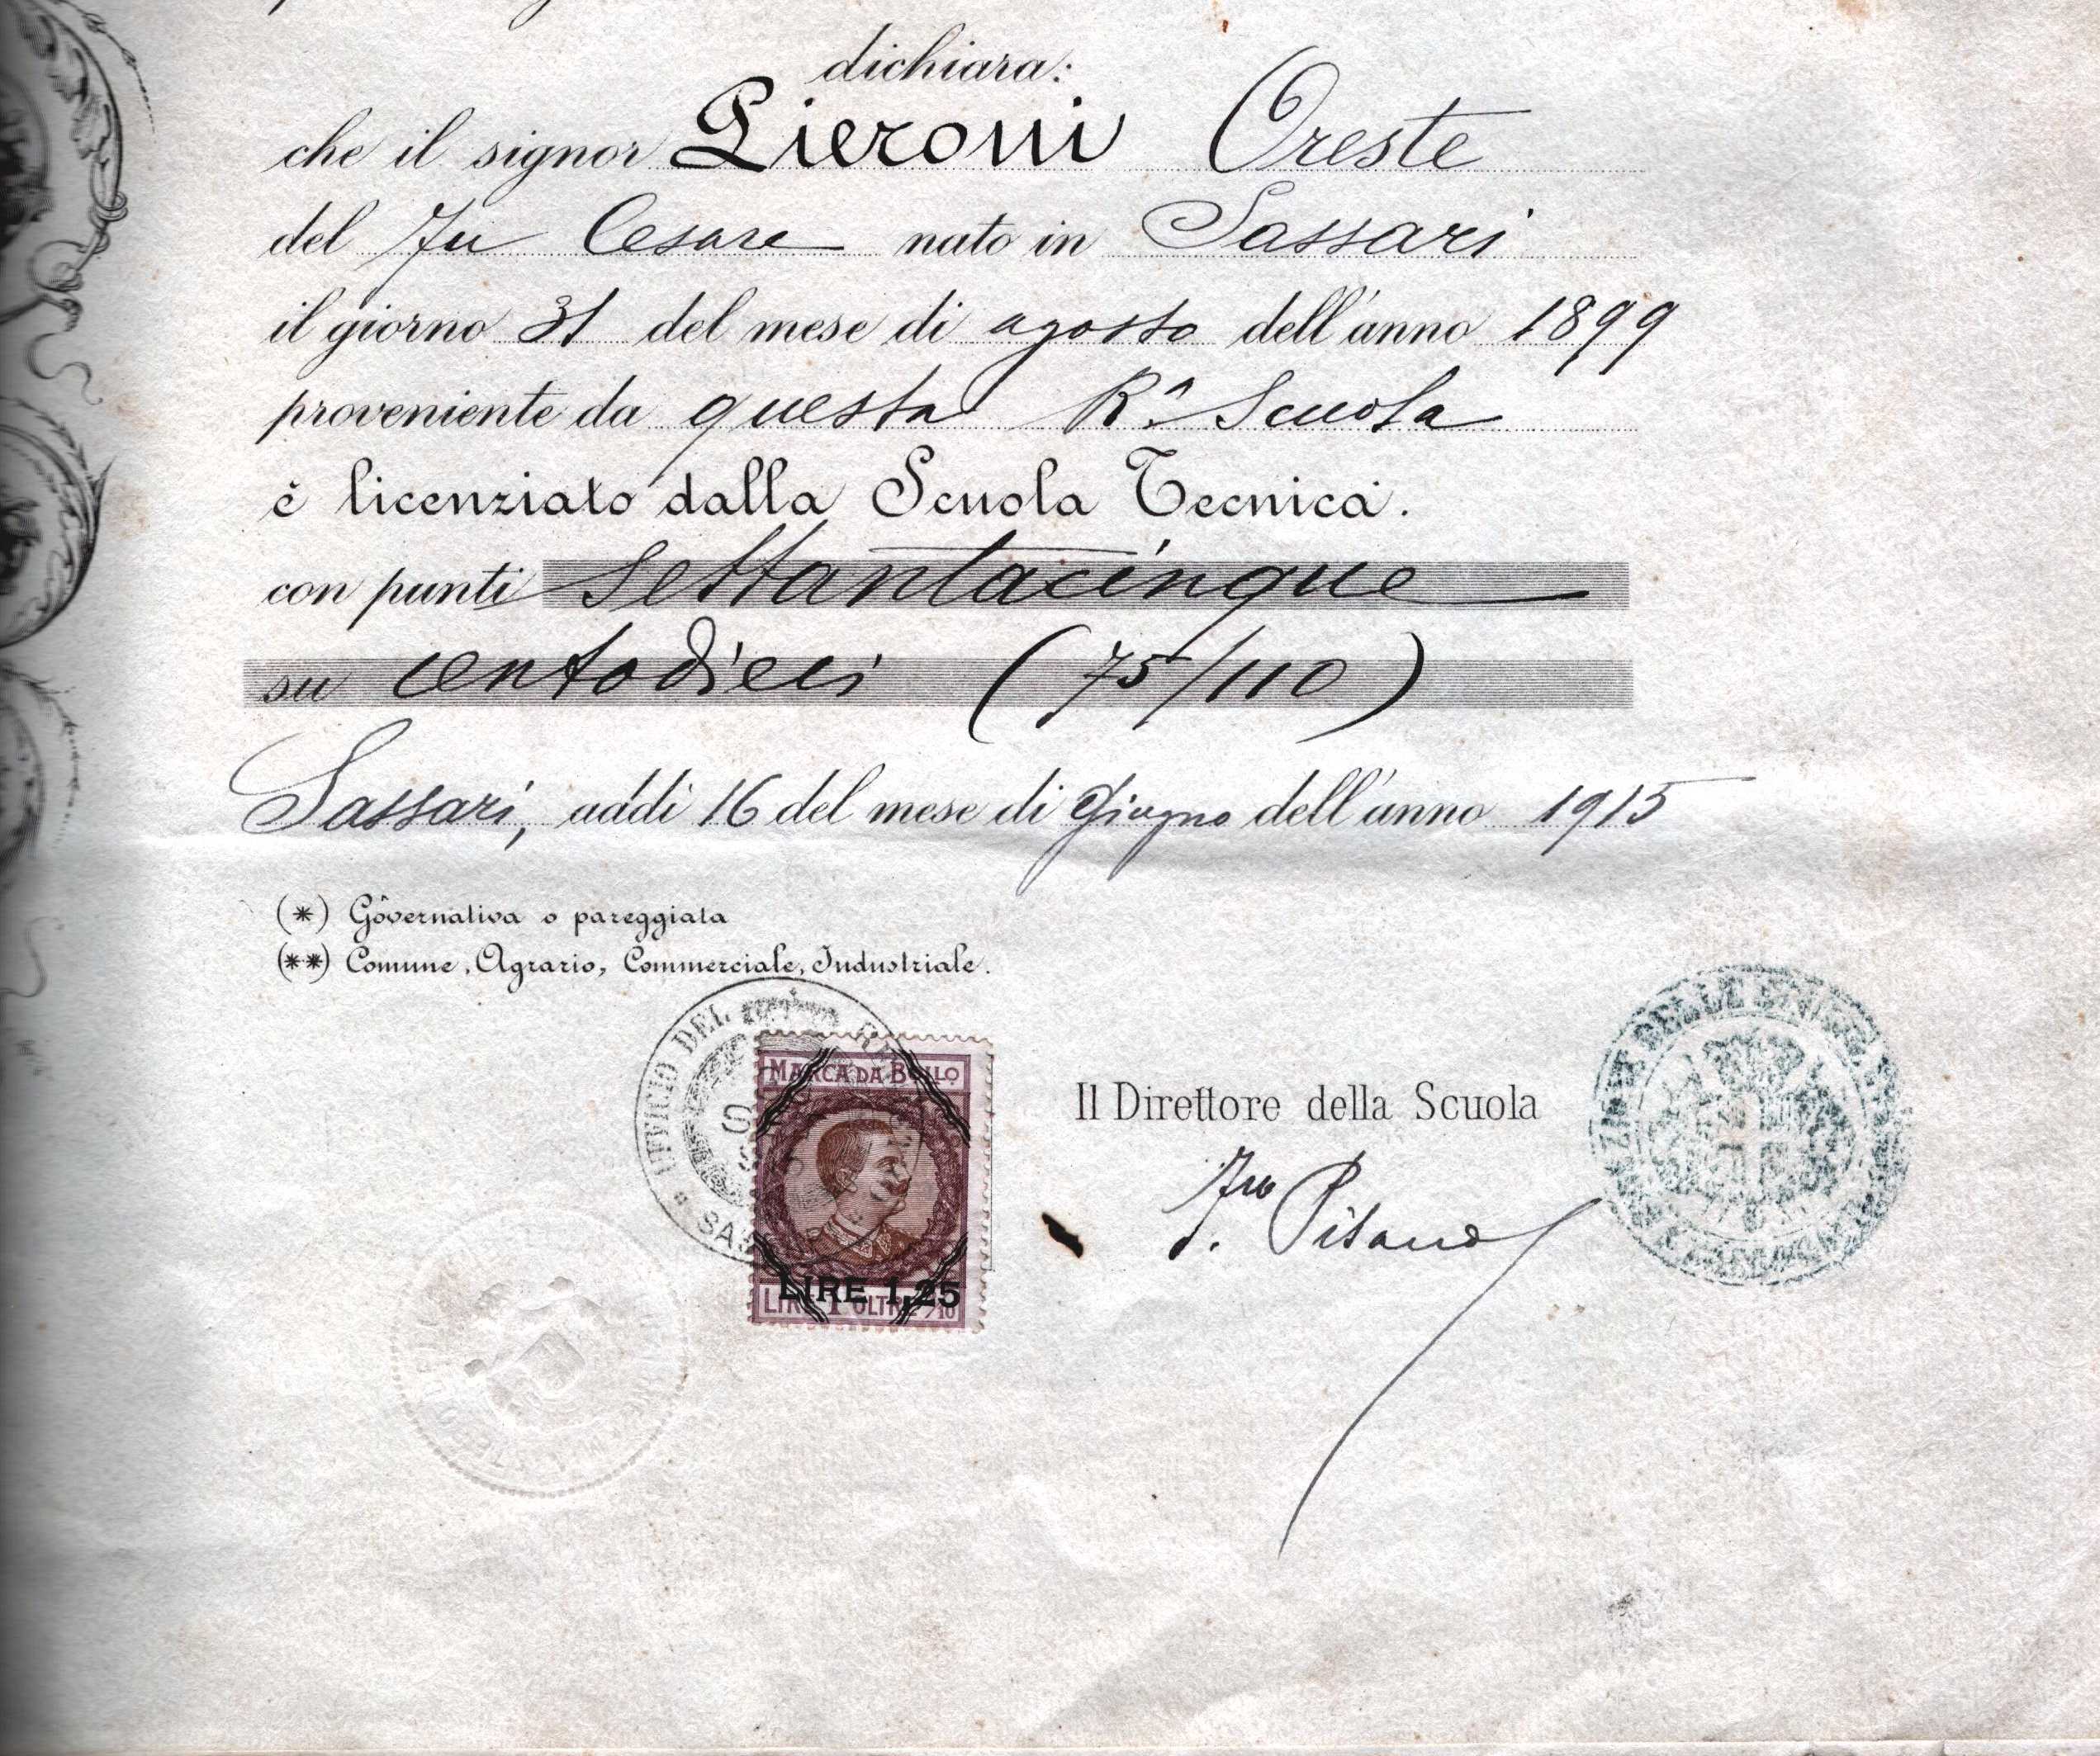 dichiara:
che il signor Pieroni Oreste
del fu Cesare nato in Sassari
il giorno 31 del mese di agosto dell'anno 1899
proveniente da questa R.ª Scuola
è licenziato dalla Scuola Tecnica.
con punti settantacinque
su centodieci (75/110)
Sassari, addì 16 del mese di Giugno dell'anno 1915
(*) Governativa o pareggiata
(**) Comune, Agrario, Commerciale, Industriale.
UFFICIO DEL
MARCA DA BOLLO
LIRE 1,25
Il Direttore della Scuola
Pisano